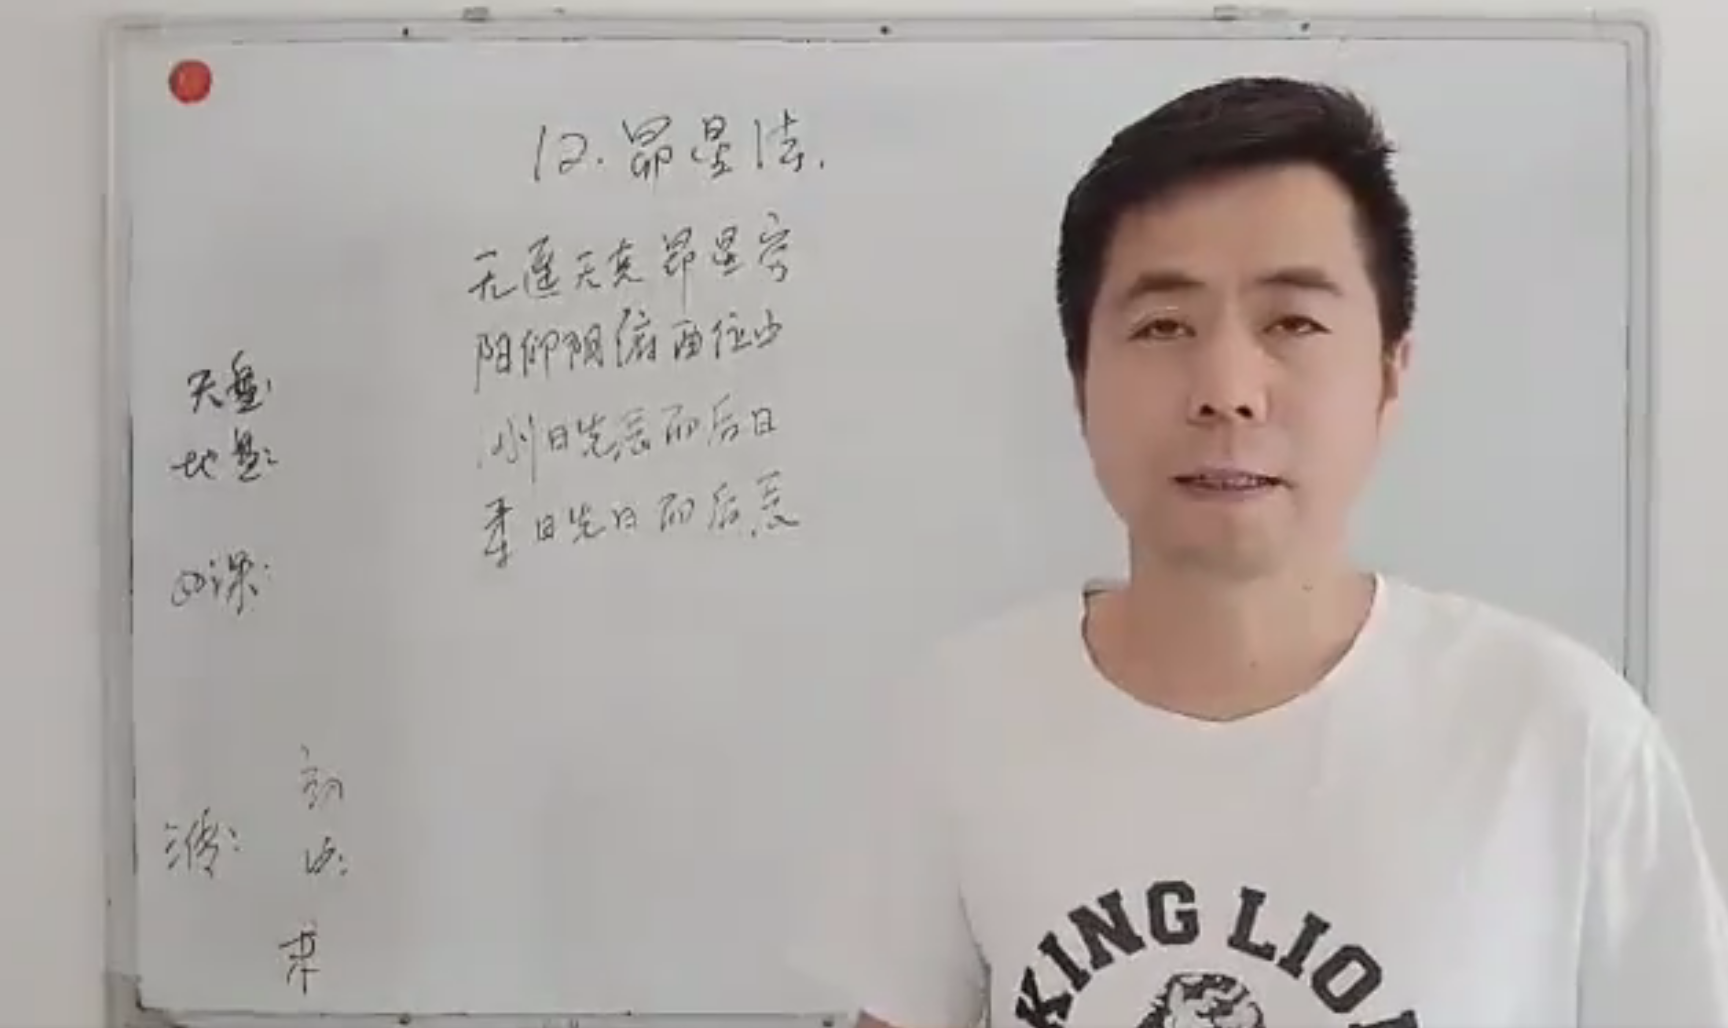 12. 昴星法.
无遥无克昴星穷
阳仰阴俯酉位中
刚日先辰而后日
柔日先日而后辰
天盘:
地盘:
四课:
三传:
初
中:
末
KING LIO